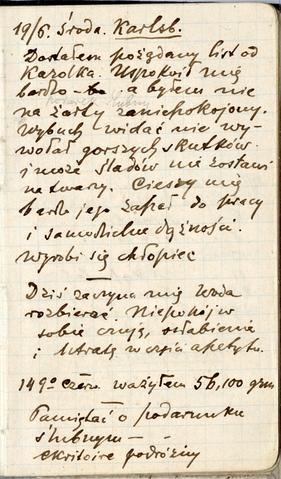 19/6. Środa. Karlsb.
Dostałem pożądany list od
Karolka. Uspokoił mię
bardzo – a byłem nie
na żarty zaniepokojony.
Wybuch widać nie wy-
wołał gorszych skutków
i może śladów nie zostawi
na twarzy. Cieszy mię
bardzo jego zapał do pracy
i samodzielne dążności.
Wyrobi się chłopiec
Dziś zaczyna mię woda
rozbierać. Niepokój w
sobie czuję, osłabienie
i utratę w części apetytu.
149º czerw. ważyłem 56,100 grm
Pamiętać o podarunku
ślubnym –
ekritoire podróżny